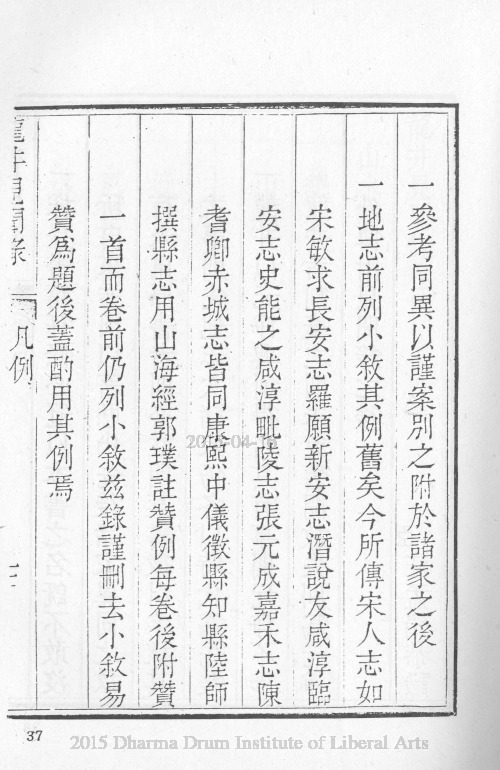 一參考同異以謹案別之附於諸家之後
一地志前列小敘其例舊矣今所傳宋人志如
宋敏求長安志羅願新安志潛說友咸淳臨
安志史能之咸淳毗陵志張元成嘉禾志陳
耆卿赤城志皆同康熙中儀徵縣知縣陸師
撰縣志用山海經郭璞註贊例每卷後附贊
一首而卷前仍列小敘茲錄謹刪去小敘易
贊為題後蓋酌用其例焉
龍井見聞錄
凡例
37
2015 Dharma Drum Institute of Liberal Arts